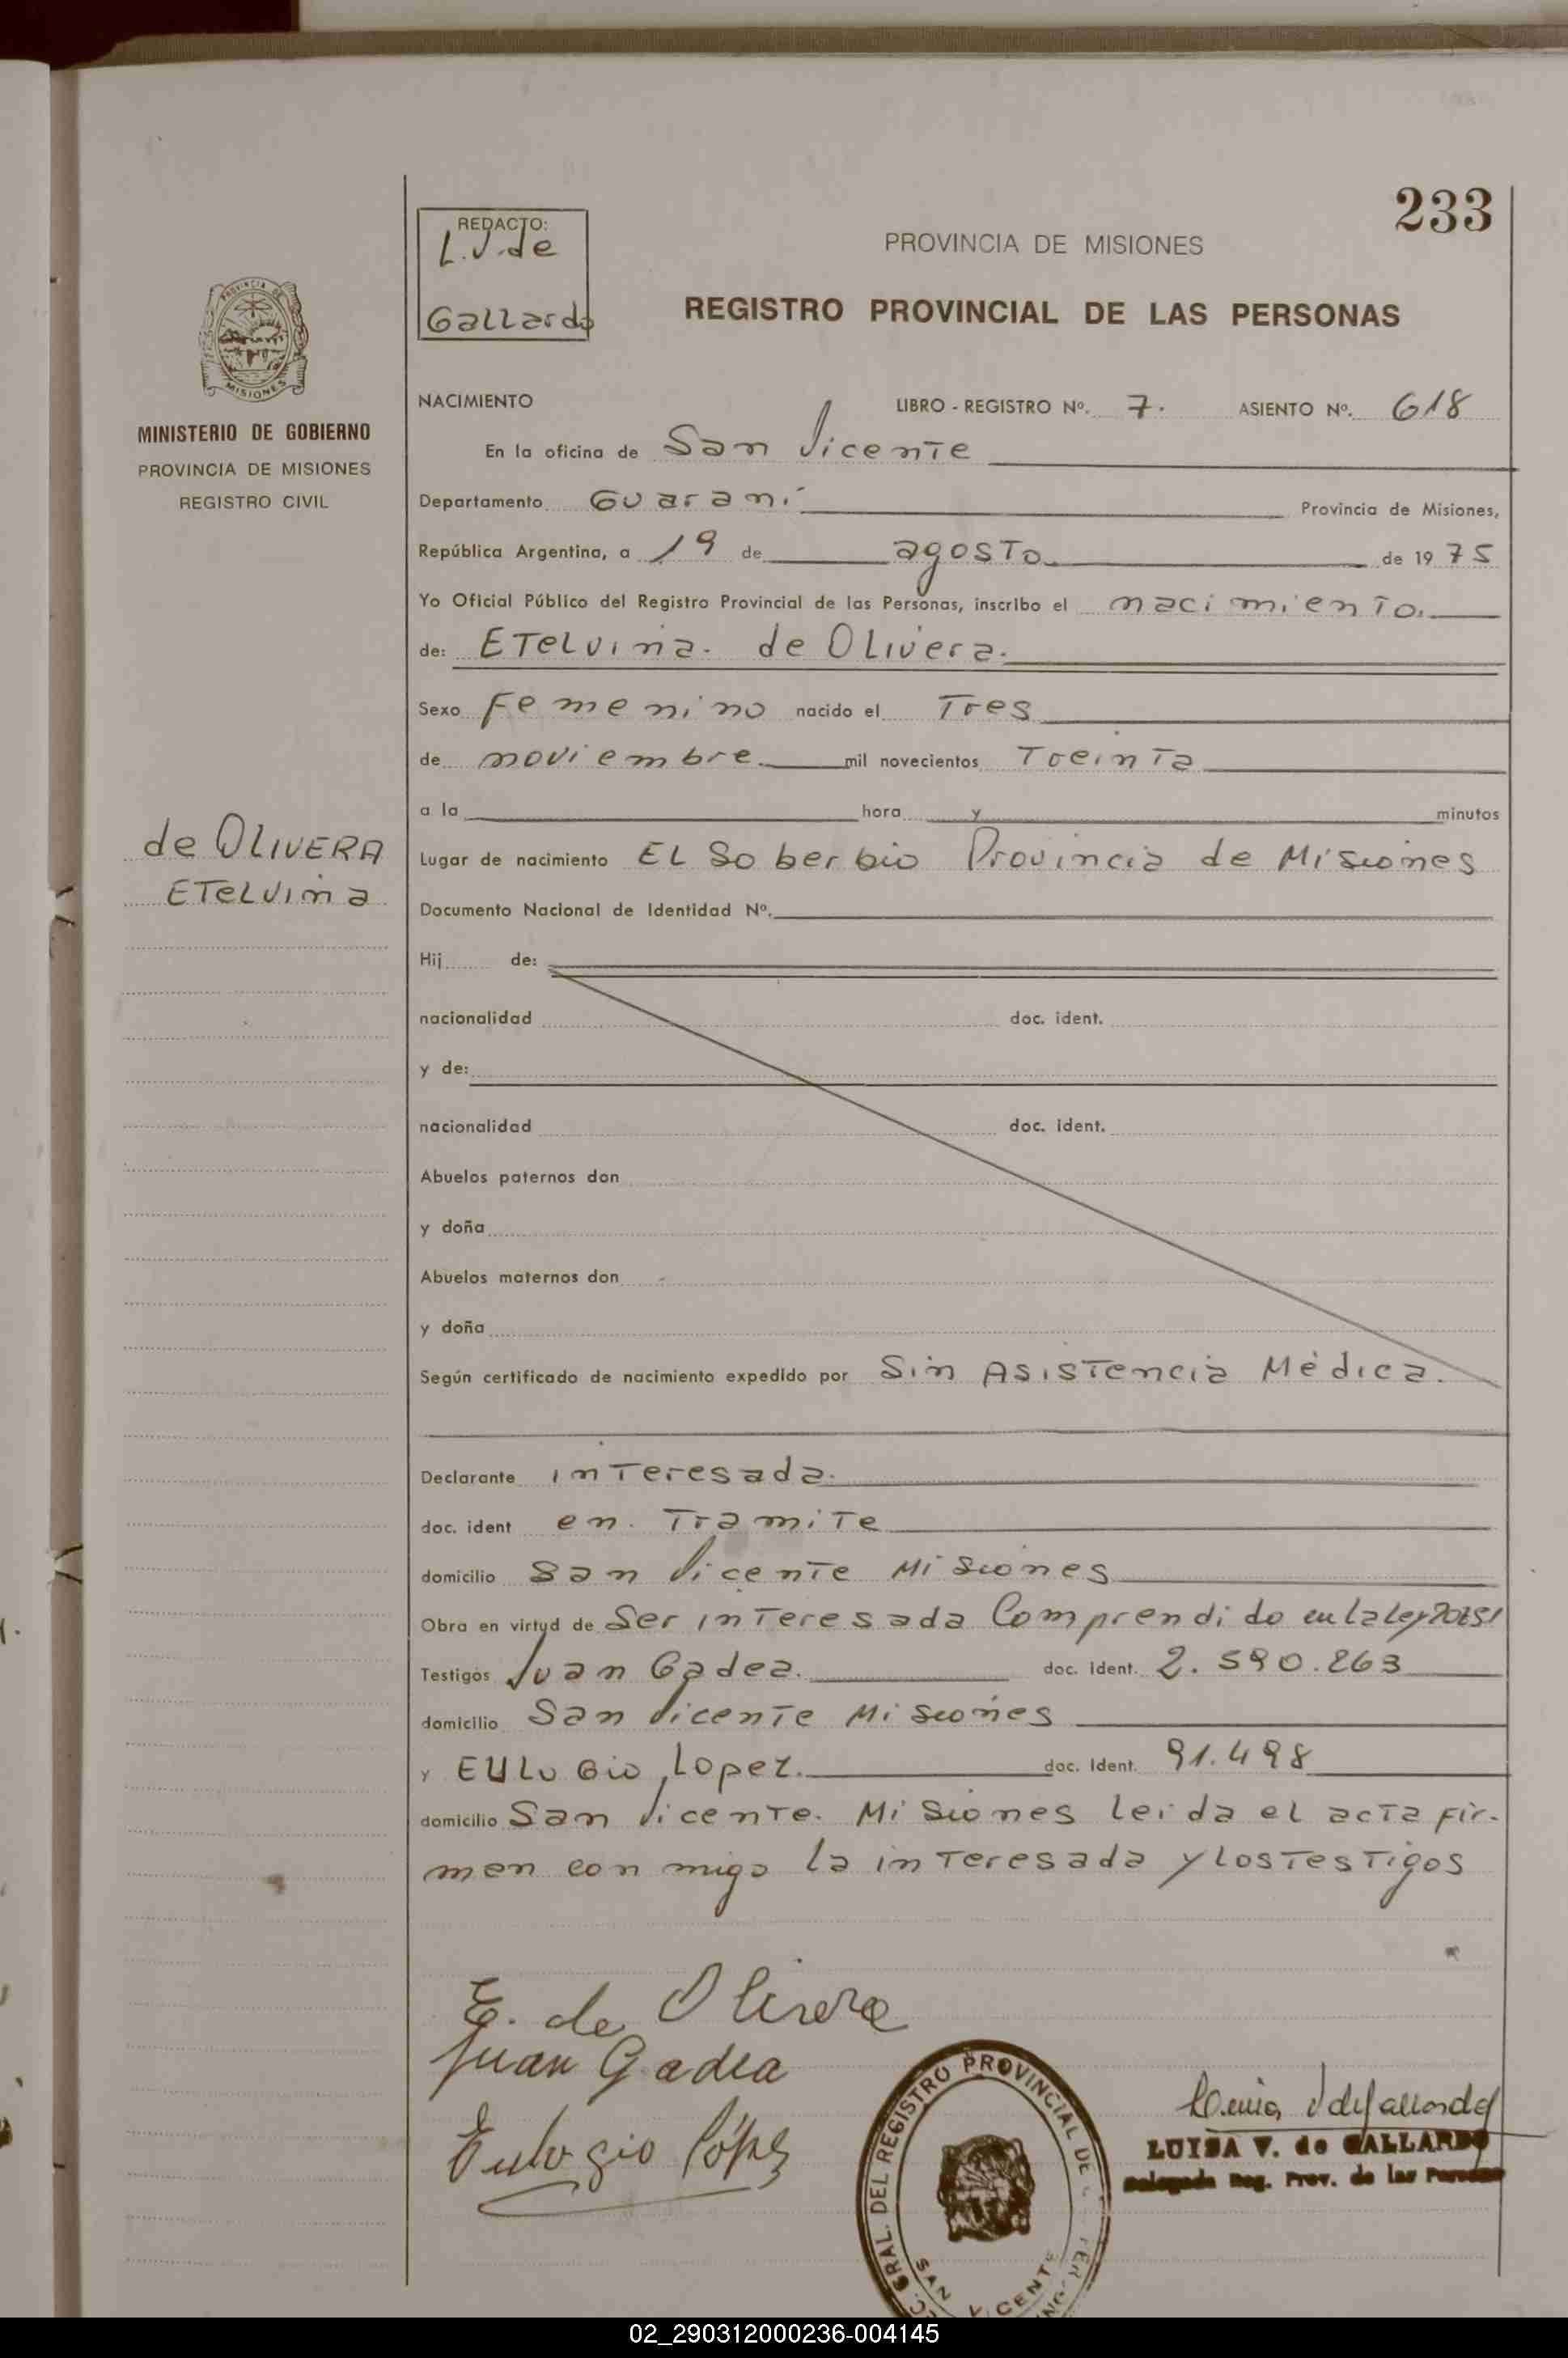 233
REDACTO:
L.V.de
Gallardo
PROVINCIA DE MISIONES
REGISTRO PROVINCIAL DE LAS PERSONAS
PROVINCIA DE
MISIONES
MINISTERIO DE GOBIERNO
PROVINCIA DE MISIONES
REGISTRO CIVIL
de OLIVERA
ETELvina
NACIMIENTO LIBRO - REGISTRO Nº. 7. ASIENTO Nº. 618
En la oficina de San Vicente
Departamento Guaraní Provincia de Misiones,
República Argentina, a 19 de agosto de 1975
Yo Oficial Público del Registro Provincial de las Personas, inscribo el nacimiento.
de: ETelvina. de Olivera.
Sexo Femenino nacido el Tres
de noviembre mil novecientos Treinta
a la hora y minutos
Lugar de nacimiento EL Soberbio Provincia de Misiones
Documento Nacional de Identidad Nº.
Hij de:
nacionalidad doc. ident.
y de:
nacionalidad doc. ident.
Abuelos paternos don
y doña
Abuelos maternos don
y doña
Según certificado de nacimiento expedido por Sin Asistencia Médica.
Declarante interesada.
doc. ident en. Tramite
domicilio San Vicente Misiones
Obra en virtud de Ser interesada Comprendido en la ley
Testigos Juan Gadea. doc. ident. 2.590.263
domicilio San Vicente Misiones
y EULOGio Lopez. doc. ident. 91.498
domicilio San Vicente. Misiones leida el acta fir-
men con migo la interesada y los Testigos
E. de Olivera
Juan Gadea
Eulogio López
GRAL. DEL REGISTRO PROVINCIAL DE
SAN VICENTE
LUISA V. de GALLARDO
Delegada Reg. Prov. de las Personas
02_290312000236-004145